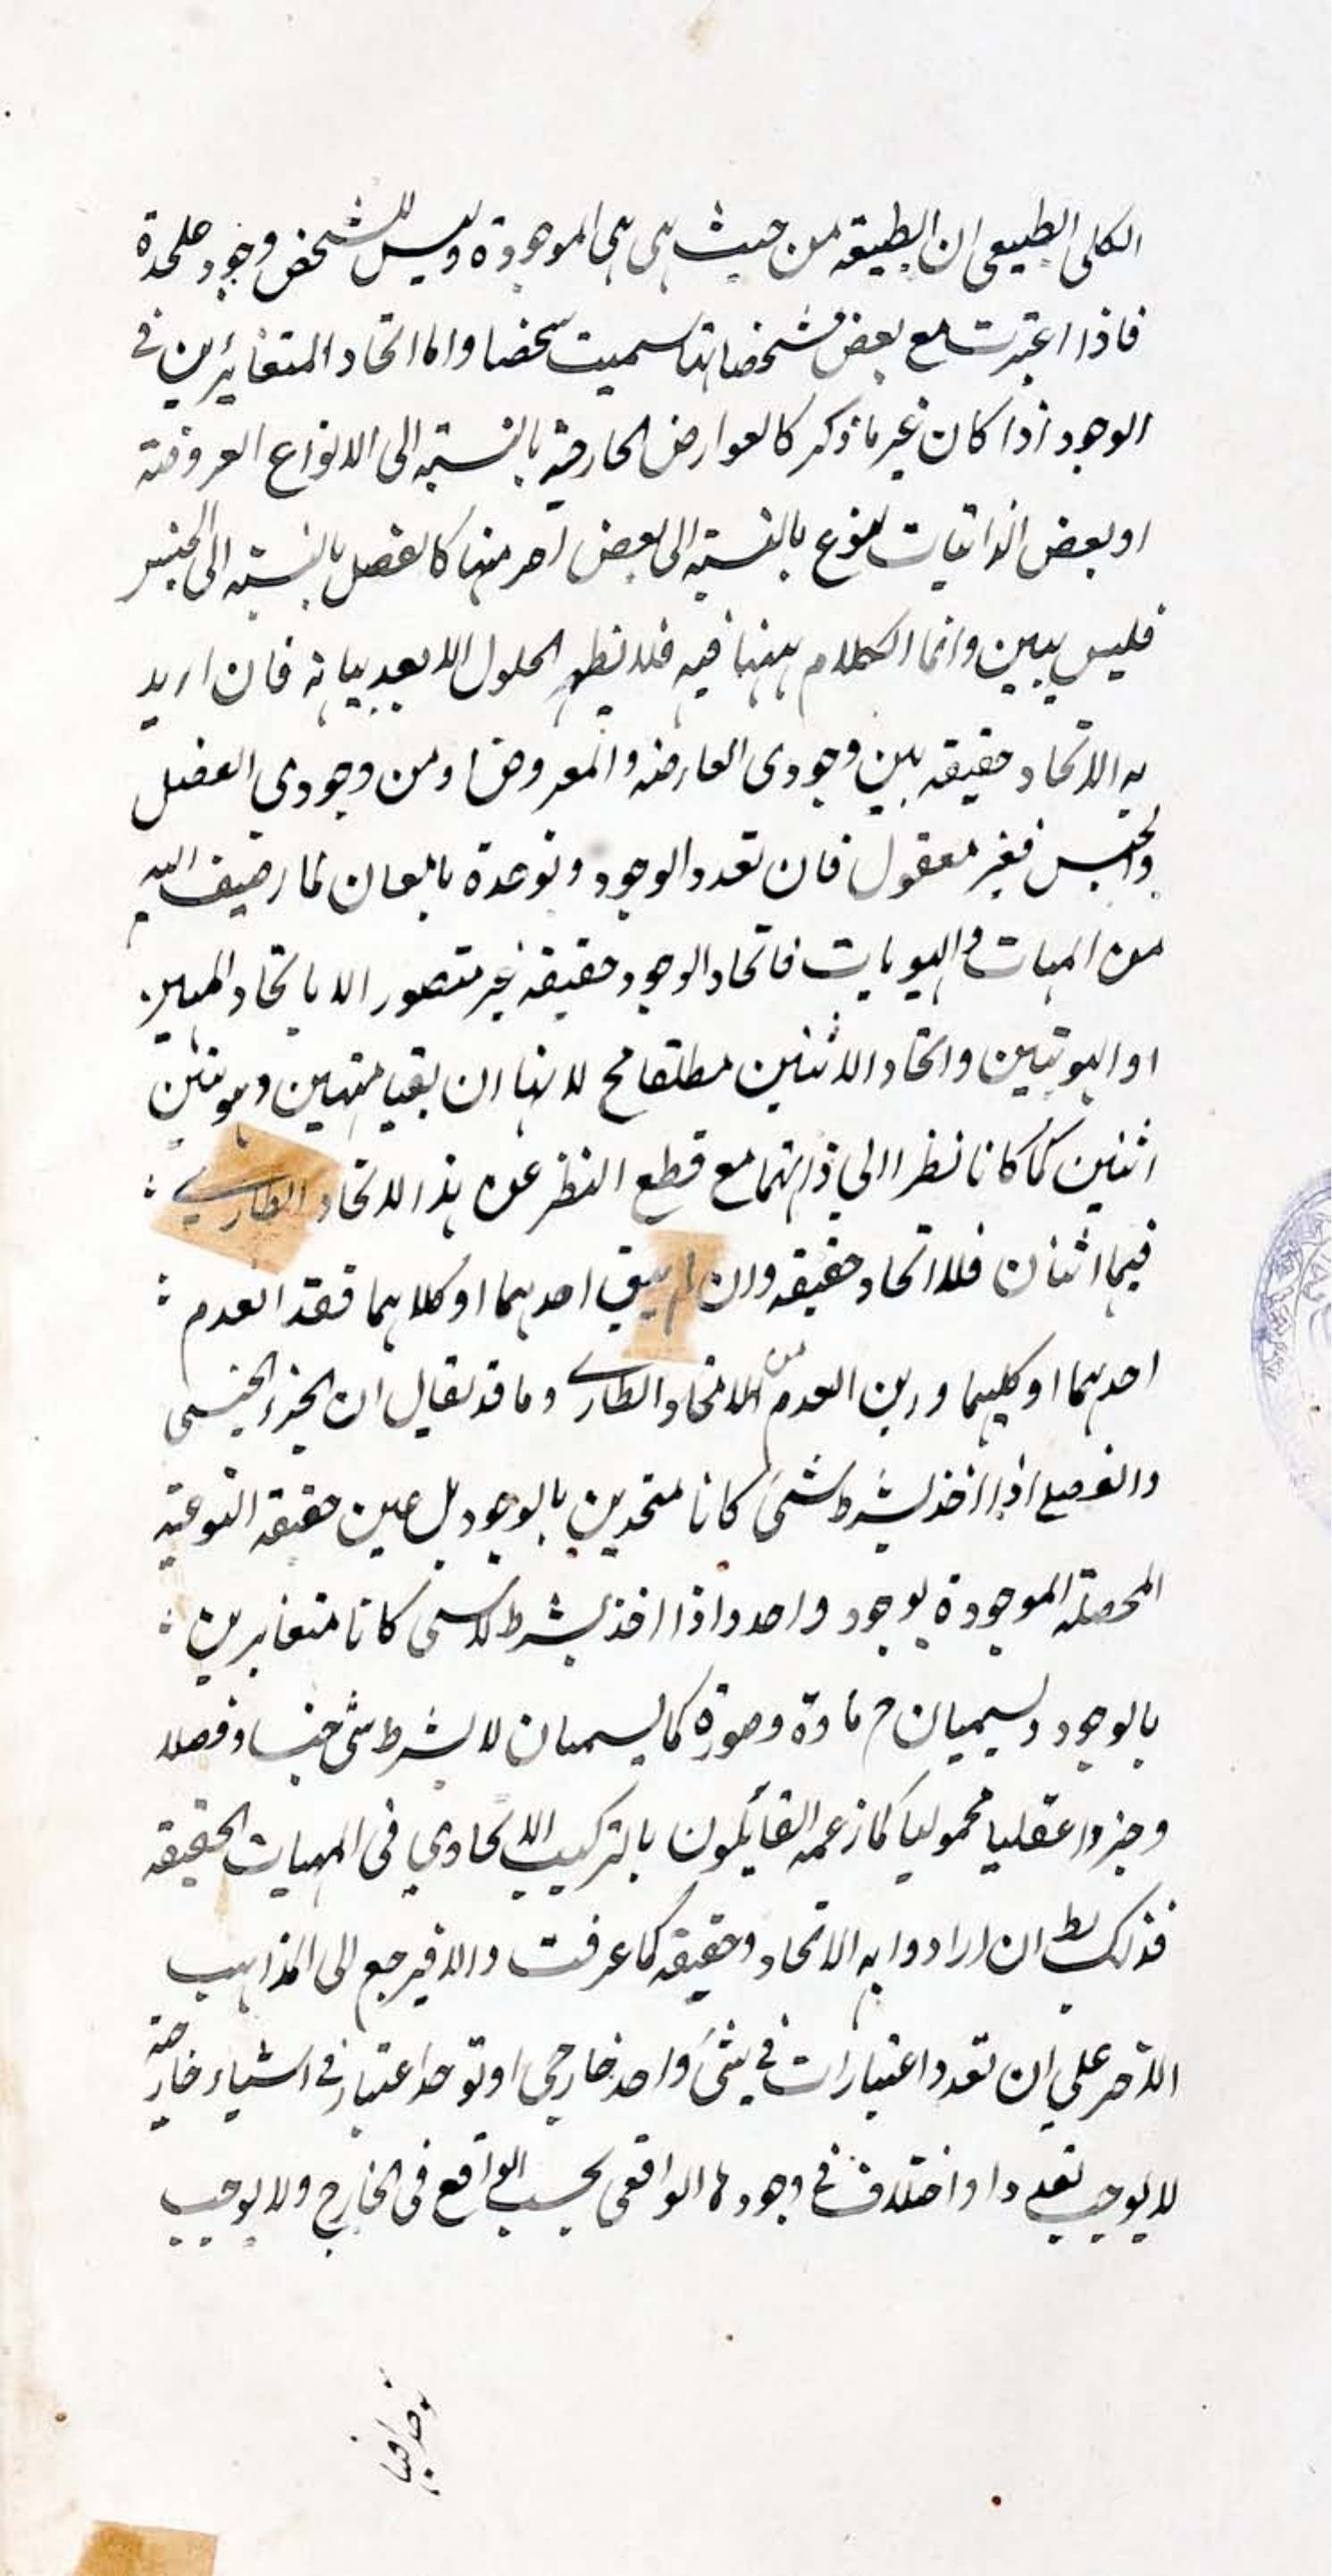 الكلى الطبيعى ان الطبيعة من حيث هى هى الموجودة وليس للشخص وجود علحدة
فاذا اعتبرت مع بعض مشخصاتها سميت شخصا واما اتحاد المتغائرين فى
الوجود اذا كان غير ما ذكر كالعوارض الخارجية بالنسبة الى الانواع المعروضة
او بعض الذاتيات للنوع بالنسبة الى بعض اخر منها كالفصل بالنسبة الى الجنس
فليس ببين وانما الكلام ههنا فيه فلا يظهر الحلول الا بعد بيانه فان اريد
به الاتحاد حقيقة بين وجودى العارض والمعروض او من وجودى الفصل
والجنس فغير معقول فان تعدد الوجود وتوحده تابعان لما اضيف اليه
من المهيات والهويات فاتحاد الوجود حقيقة غير متصور الا باتحاد المهيتين
او الهويتين واتحاد الاثنين مطلقا مح لانهما ان بقيا مهيتين وهويتين
اثنين كما كانا نظرا الى ذاتهما مع قطع النظر عن هذا الاتحاد الطارى
فهما اثنان فلا اتحاد حقيقة وان لم يبق احدهما او كلاهما فقد انعدم
احدهما او كليهما واين العدم من الاتحاد الطارى وما قد يقال ان الجزء الجنسى
والفصلى اذا اخذ بشرط شئ كانا متحدين بالوجود بل عين حقيقة النوعية
المحصلة الموجودة بوجود واحد واذا اخذ بشرط لا شئ كانا متغايرين
بالوجود ويسميان ح مادة وصورة كما يسميان لا بشرط شئ جنسا وفصلا
وجزءا عقليا محموليا كما زعمه القائلون بالتركيب الاتحادي فى المهيات الحقيقة
فذلك بط ان ارادوا به الاتحاد حقيقة كما عرفت والا فيرجع الى المذاهب
الاخر على ان تعدد اعتبارات فى شئ واحد خارجى او توحد اعتبار فى اشياء خارجية
لا يوجب تعددا واختلاف فى وجودها الواقعى بحسب الواقع فى الخارج ولا يوجب